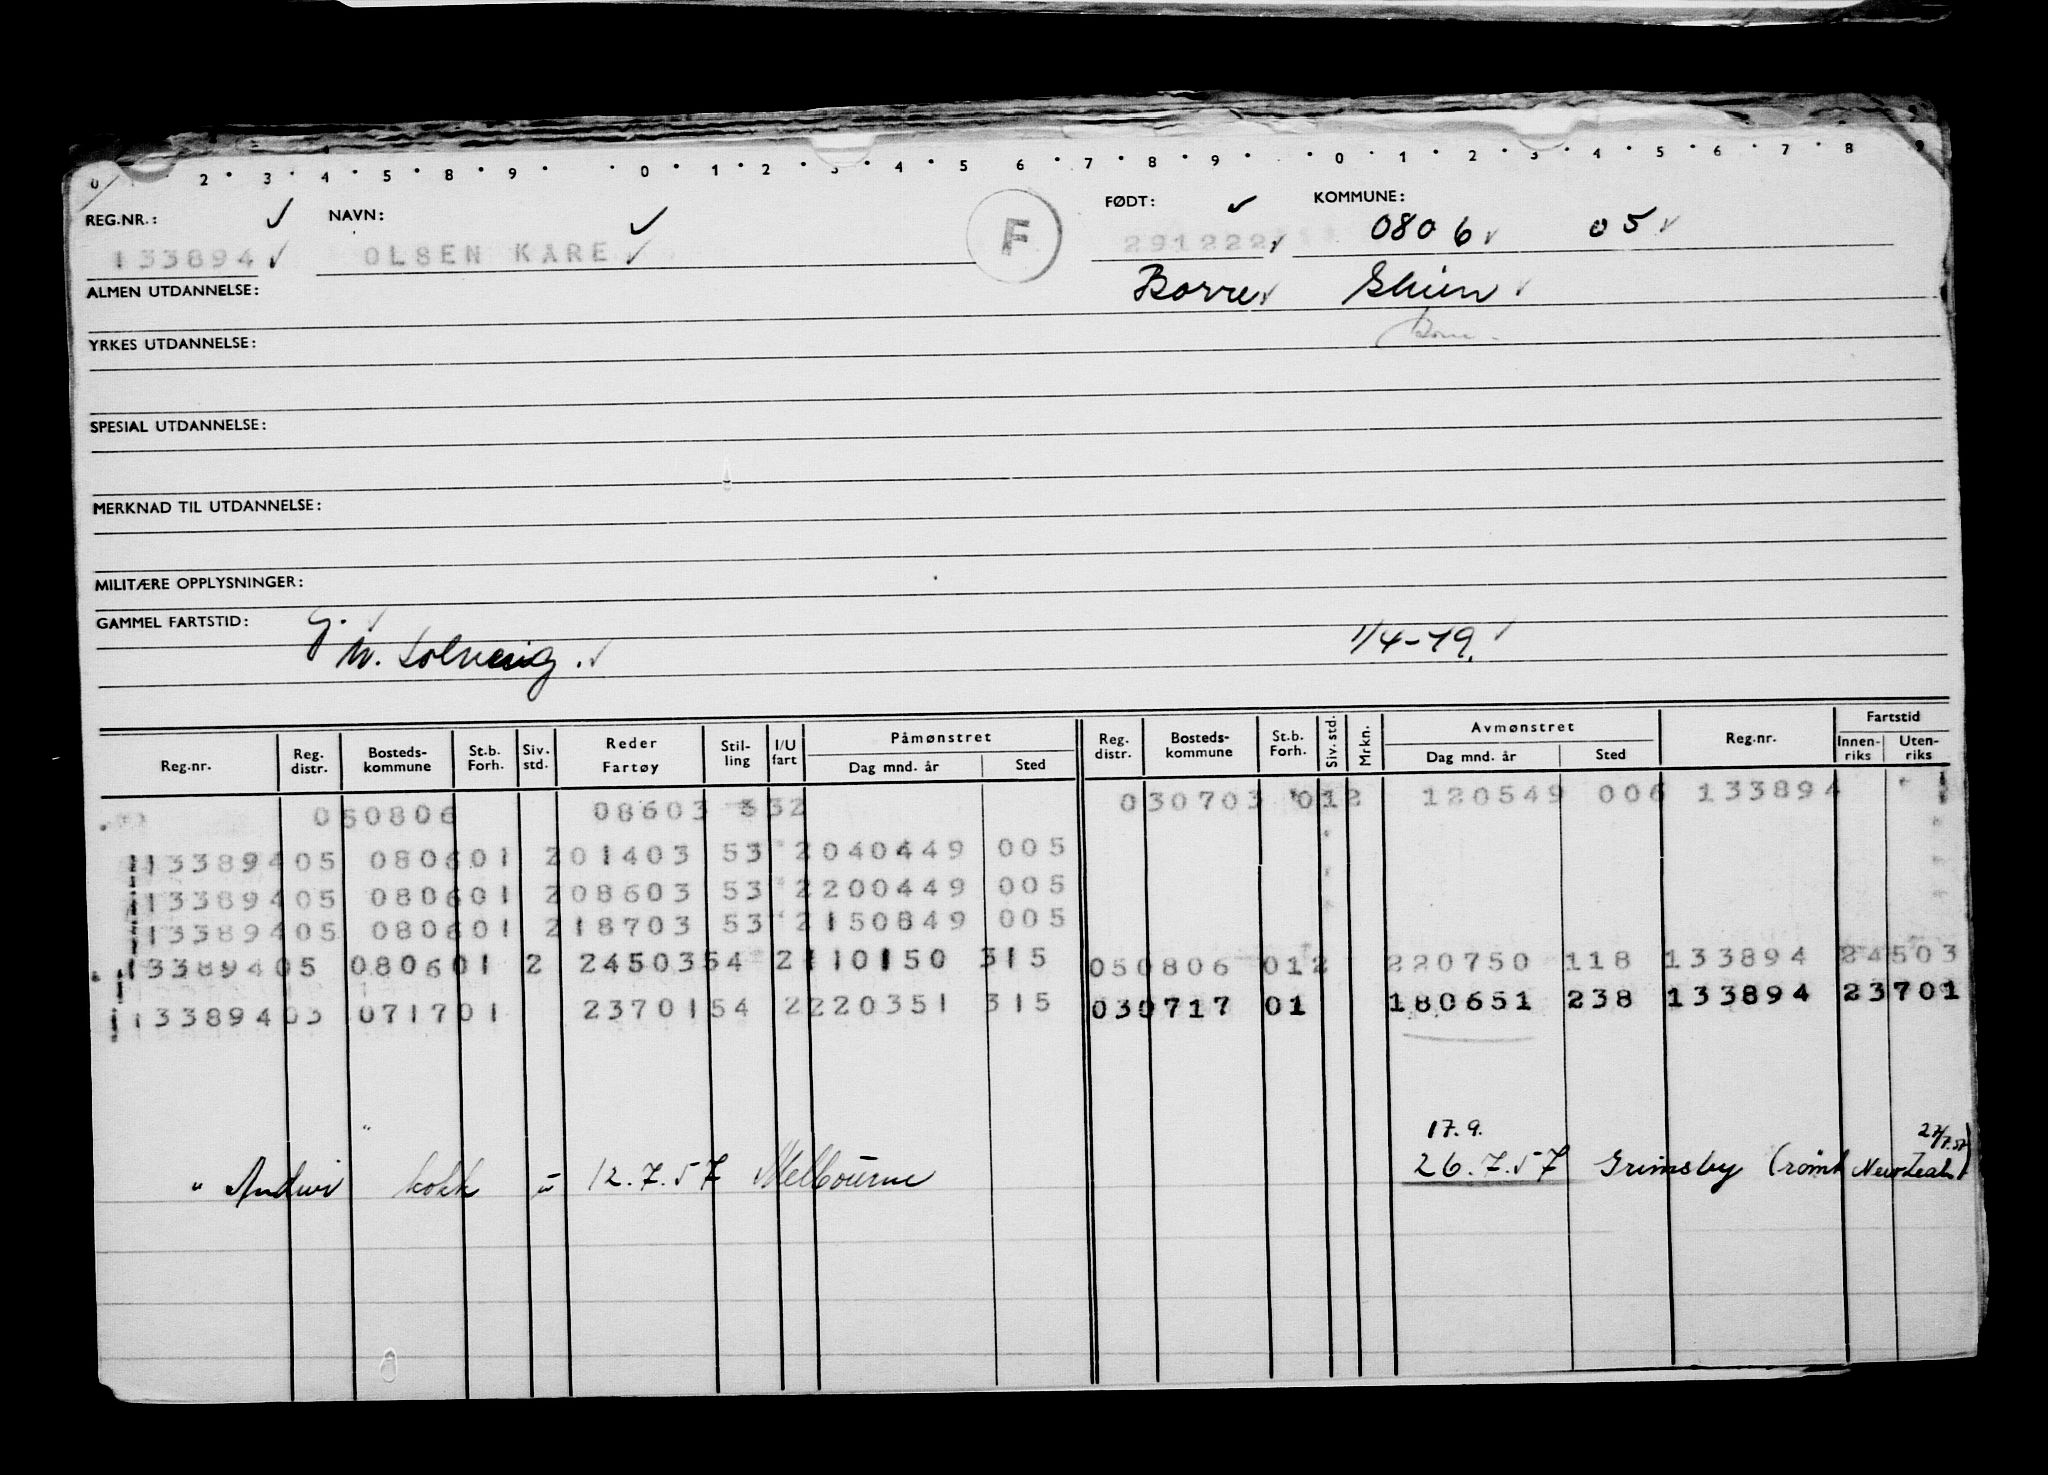 0 1 2 3 4 5 8 9 0 1 2 3 4 5 6 7 8 9 0 1 2 3 4 5 6 7 8 9
REG.NR.: NAVN: FØDT: KOMMUNE:
133894 OLSEN KARE F 291222 0806 05
ALMEN UTDANNELSE: Borre Skien
YRKES UTDANNELSE:
SPESIAL UTDANNELSE:
MERKNAD TIL UTDANNELSE:
MILITÆRE OPPLYSNINGER:
GAMMEL FARTSTID: 1/4-49.
Solveig.
Reg.nr. Reg. distr. Bosteds-kommune St.b. Forh. Siv. std. Reder Fartøy Stil-ling I/U fart Påmønstret Dag mnd. år Sted Reg. distr. Bosteds-kommune St.b. Forh. Siv. std. Mrkn. Avmønstret Dag mnd. år Sted Reg.nr. Fartstid Innen-riks Uten-riks
050806 08603 332 030703 012 120549 006 133894
13389405 080601 201403 53 2040449 005
13389405 080601 208603 53 2200449 005
13389405 080601 218703 53 2150849 005
13389405 080601 2 2450354 2110150 315 050806 012 220750 118 133894 24503
13389403 071701 2370154 2220351 315 030717 01 180651 238 133894 23701
17.9. 27/7.57
" kokk 12.7.57 Melbourne 26.7.57 Grimsby (rømt New Zeal.)